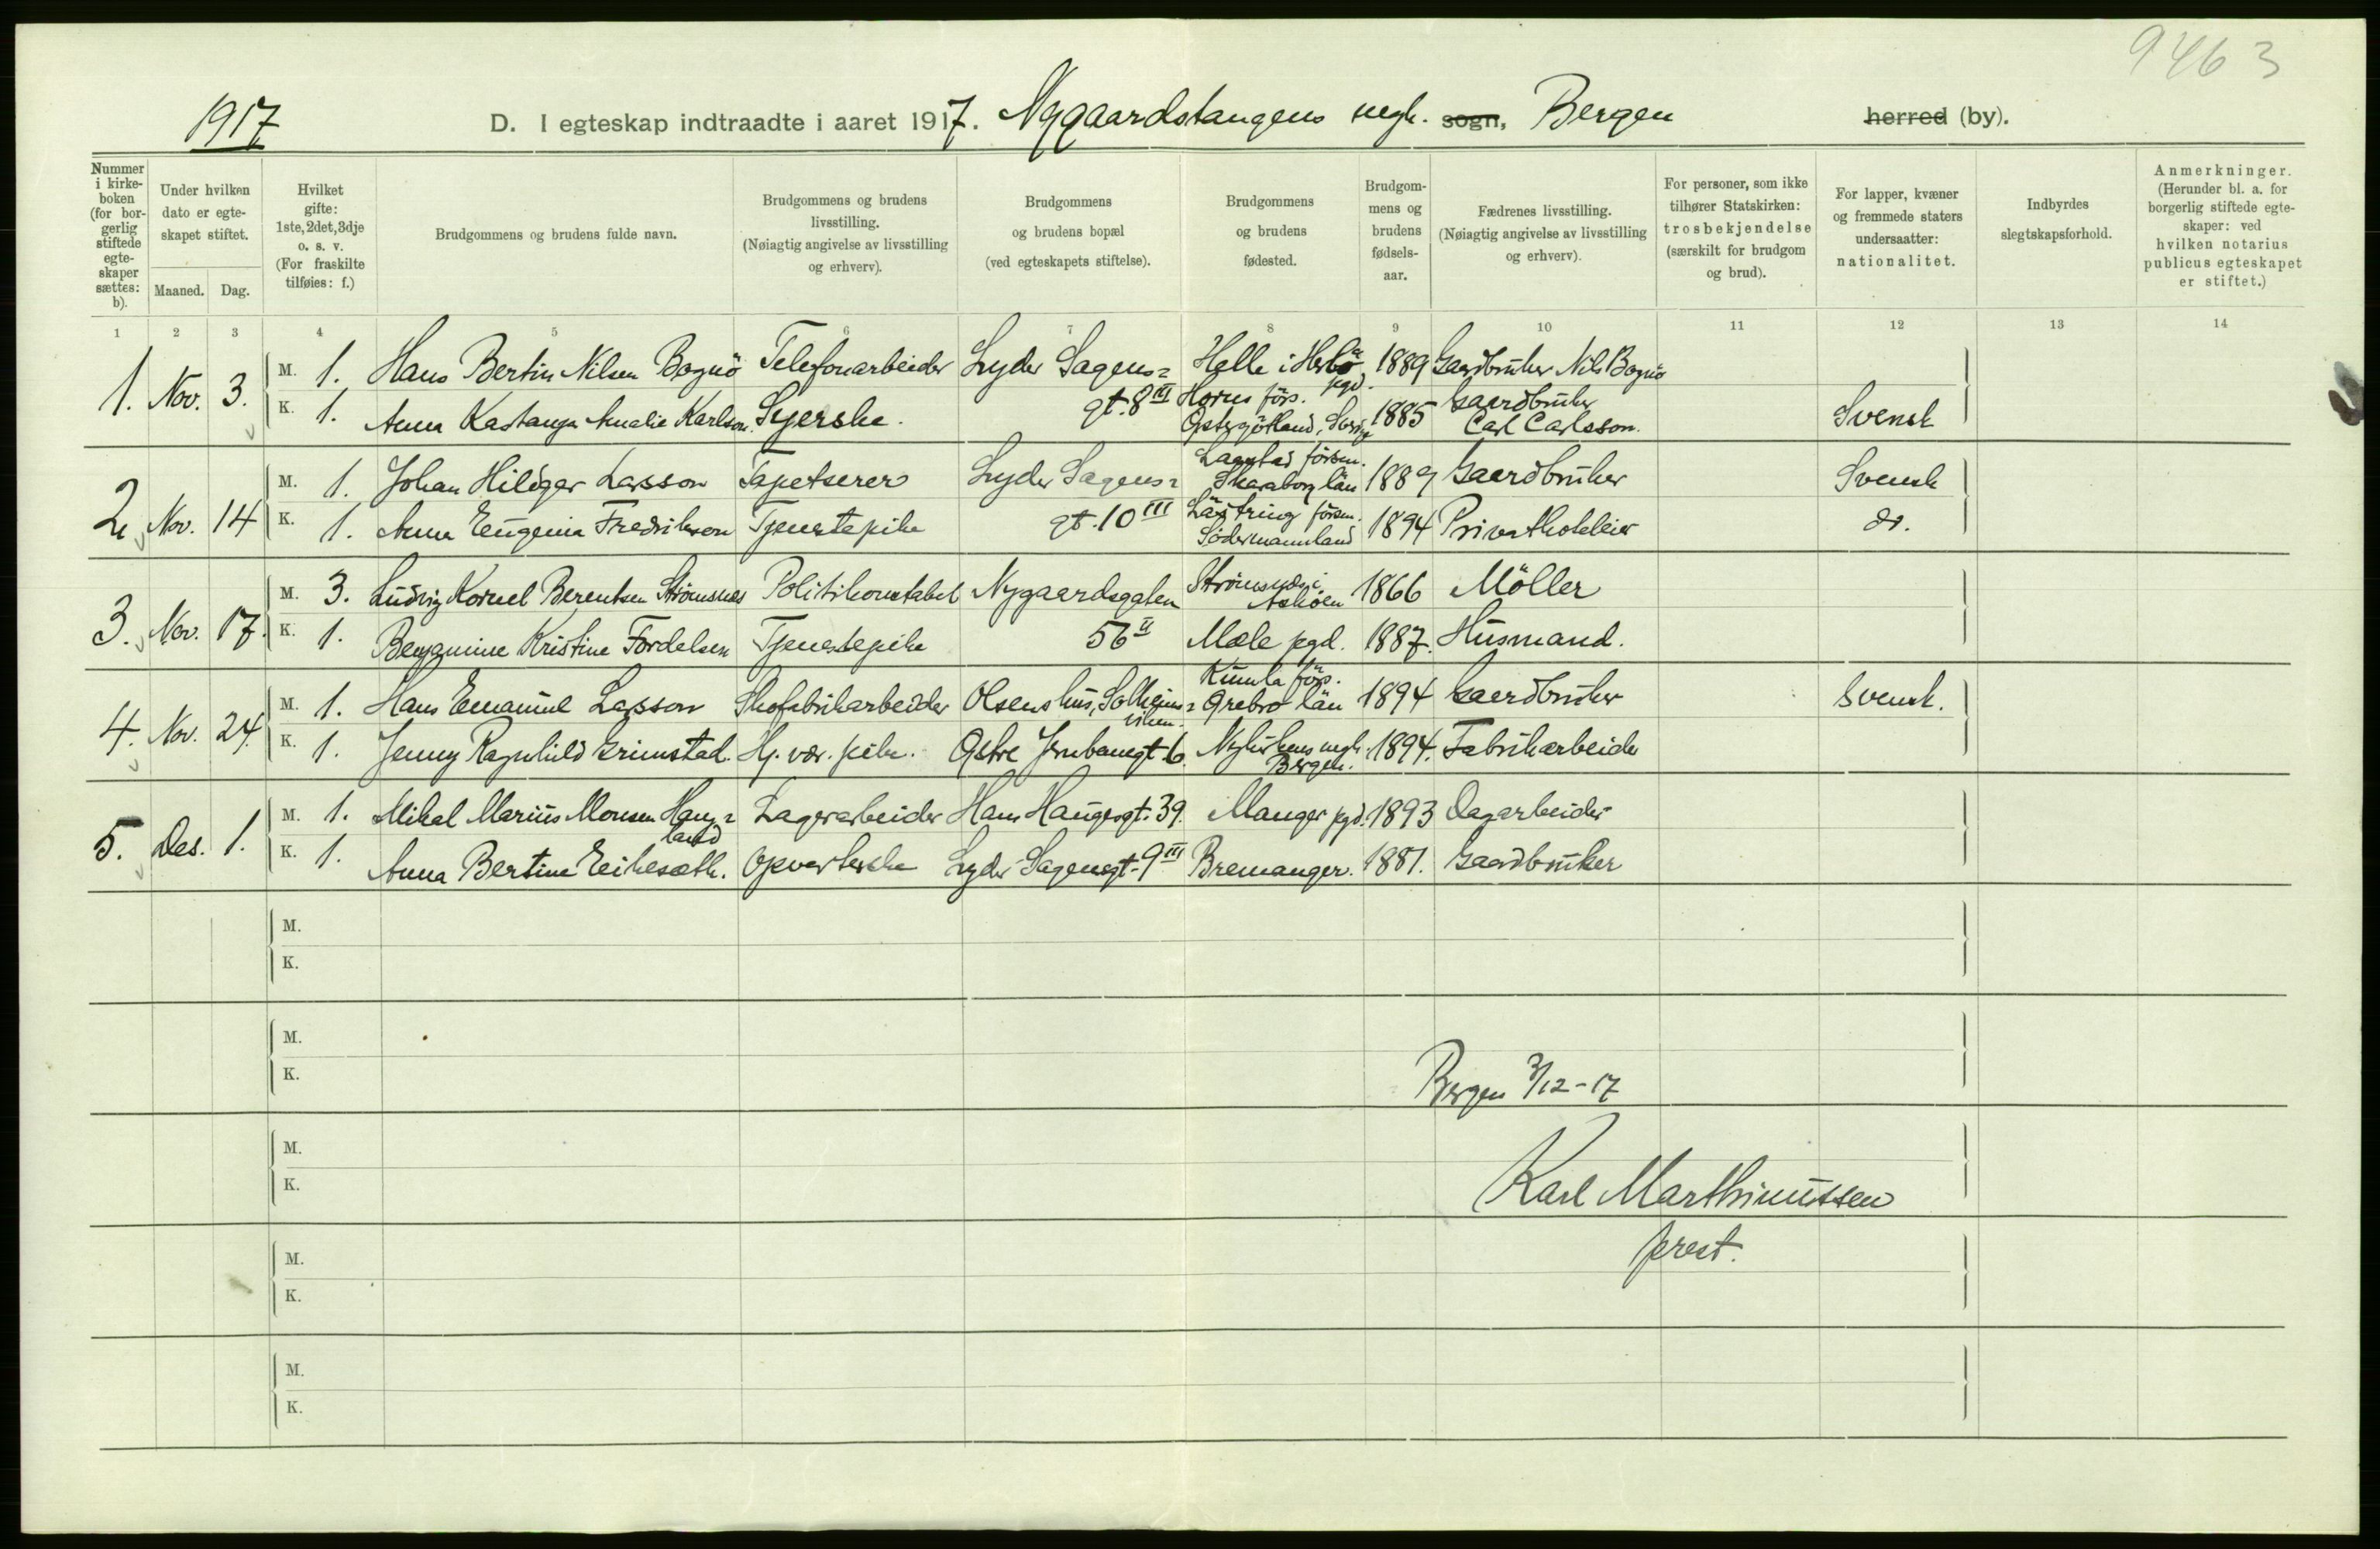 9463
1917
D. I egteskap indtraadte i aaret 1917. Nygaardstangens mgh. sogn, Bergen herred (by).
Nummer i kirkeboken (for borgerlig stiftede egteskaper sættes: b).
Under hvilken dato er egteskapet stiftet.
Maaned. Dag.
Hvilket gifte: 1ste, 2det, 3dje o. s. v. (For fraskilte tilføies: f.)
Brudgommens og brudens fulde navn.
Brudgommens og brudens livsstilling. (Nøiagtig angivelse av livsstilling og erhverv).
Brudgommens og brudens bopæl (ved egteskapets stiftelse).
Brudgommens og brudens fødested.
Brudgommens og brudens fødselsaar.
Fædrenes livsstilling. (Nøiagtig angivelse av livsstilling og erhverv).
For personer, som ikke tilhører Statskirken: trosbekjendelse (særskilt for brudgom og brud).
For lapper, kvæner og fremmede staters undersaatter: nationalitet.
Indbyrdes slegtskapsforhold.
Anmerkninger. (Herunder bl. a. for borgerlig stiftede egteskaper: ved hvilken notarius publicus egteskapet er stiftet.)
1 2 3 4 5 6 7 8 9 10 11 12 13 14
1. Nov. 3. M. 1. Hans Bertin Nilsen Bognö Telefonarbeider Lyder Sagens= Helle i Herlö pgd. 1889 Gaardbruker Nils Bognö
K. 1. Anna Kastanja Amalie Karlson. Syerske. gt. 8 III Horns förs. Östergötland, Sverige 1885 Gaardbruker Carl Carlsson. Svensk
2. Nov. 14 M. 1. Johan Hildger Larsson Tapetserer Lyder Sagens= Skaraborg län 1889 Gaardbruker Svensk
K. 1. Anna Eugenia Fredrikson Tjenestepike gt. 10 III Lästring försm. Södermannland 1894 Privathoteleier do.
3. Nov. 17. M. 3. Ludvig Kornel Berentsen Strömsnes Politikonstabel Nygaardsgaten Strömsnes i Askøen 1866 Möller
K. 1. Benjamine Kristine Fordelsen Tjenestepike 56 II Mæle pgd. 1887. Husmand.
4. Nov. 24. M. 1. Hans Emanuel Larsson Skofabrikarbeider Olsens hus, Solheims= viken. Kumla förs. Örebro län 1894 Gaardbruker Svensk.
K. 1. Jenny Ragnhild Grimstad. Hj. vær. pike. Östre Jernbanegt. 6. Nykirkens mgh. Bergen. 1894. Fabrikarbeider
5. Des. 1. M. 1. Mikal Marius Monsen Haug= land Lagerarbeider Hans Haugesgt. 39. Manger pgd. 1893 Dagarbeider
K. 1. Anna Bertine Eikesæth. Opvarterske Lyder Sagensgt. 9 III Bremanger. 1881. Gaardbruker
M.
K.
M.
K.
Bergen 3/12-17
M.
K.
Karl Marthinussen
prest.
M.
K.
M.
K.